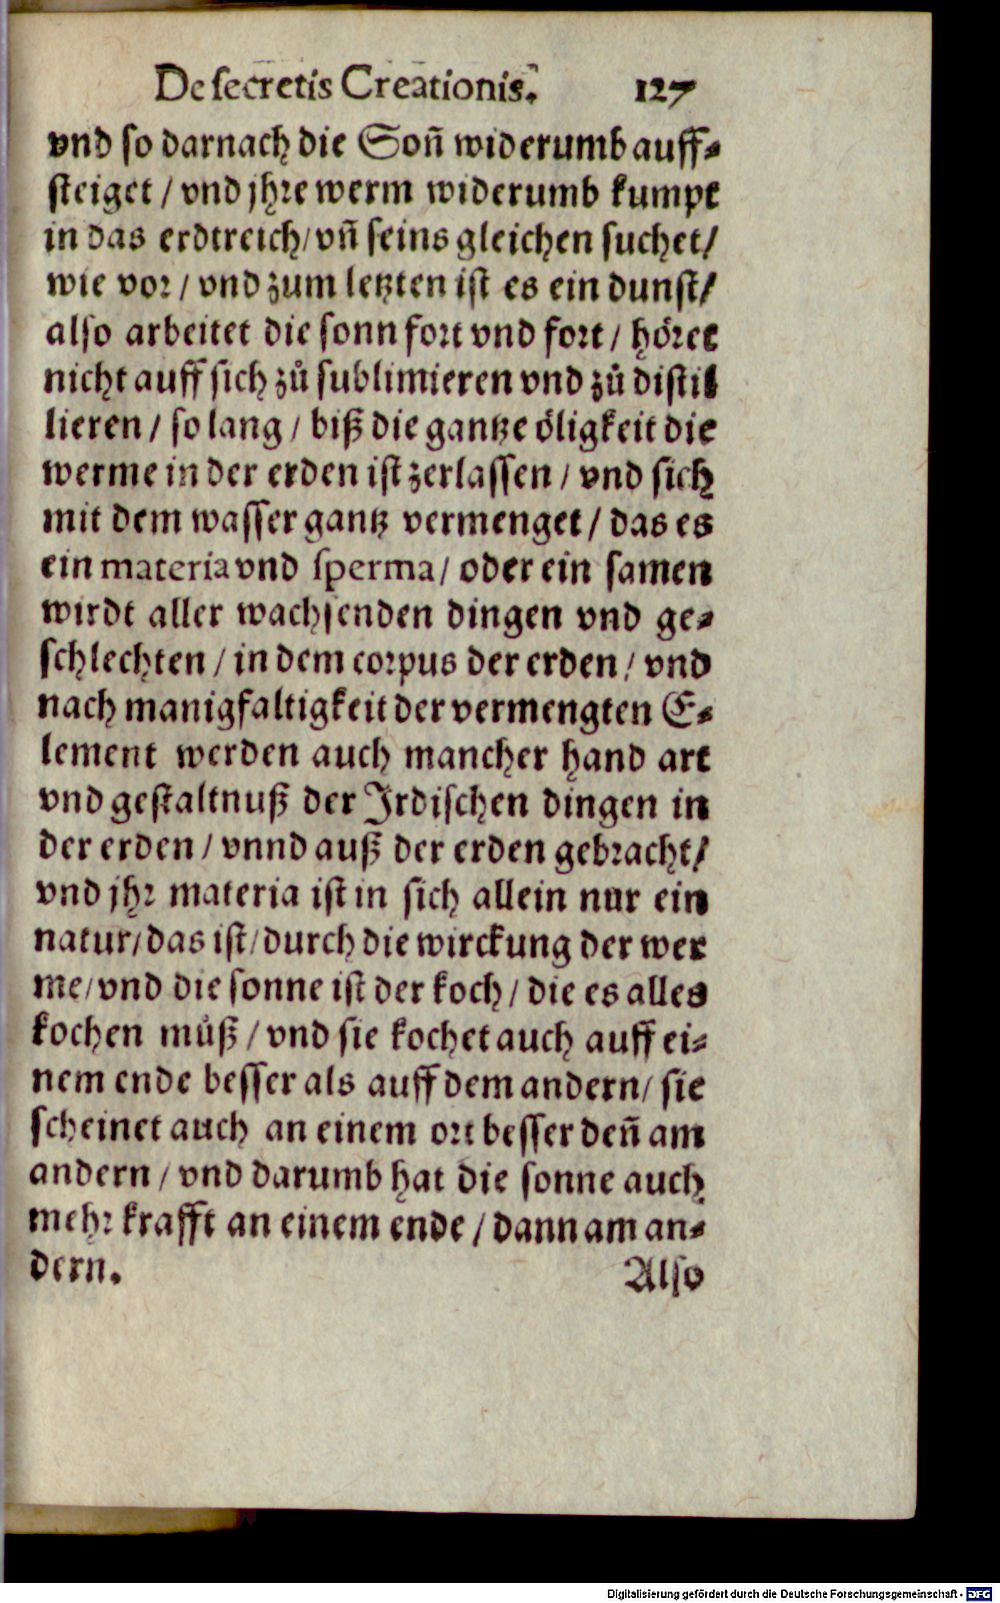 De secretis Creationis. 127
vnd so darnach die Soñ widerumb auff⸗
steiget / vnd jhre werm widerumb kumpt
in das erdtreich / vñ seins gleichen suchet /
wie vor / vnd zum letzten ist es ein dunst /
also arbeitet die sonn fort vnd fort / höret
nicht auff sich zů sublimieren vnd zů distil
lieren / so lang / biß die gantze öligkeit die
werme in der erden ist zerlassen / vnd sich
mit dem wasser gantz vermenget / das es
ein materia vnd sperma / oder ein samen
wirdt aller wachsenden dingen vnd ge⸗
schlechten / in dem corpus der erden / vnd
nach manigfaltigkeit der vermengten E⸗
lement werden auch mancher hand art
vnd gestaltnuß der Irdischen dingen in
der erden / vnnd auß der erden gebracht /
vnd jhr materia ist in sich allein nur ein
natur / das ist / durch die wirckung der wer
me / vnd die sonne ist der koch / die es alles
kochen můß / vnd sie kochet auch auff ei⸗
nem ende besser als auff dem andern / sie
scheinet auch an einem ort besser deñ am
andern / vnd darumb hat die sonne auch
mehr krafft an einem ende / dann am an⸗
dern. Also
Digitalisierung gefördert durch die Deutsche Forschungsgemeinschaft - DFG